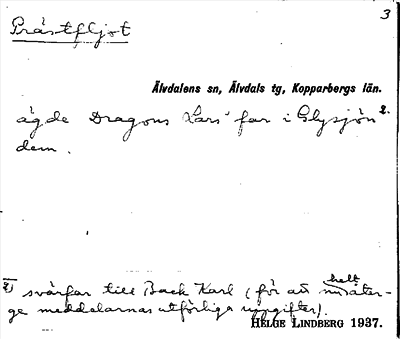 Prästfljot
3
Älvdalens sn, Älvdals tg, Kopparbergs län.
ägde Dragons Lars' far i Glysjön 2.
dem.
2) svärfar till Back Karl (för att helt åter-
ge meddelarnas utförliga uppgifter).
HELGE LINDBERG 1937.